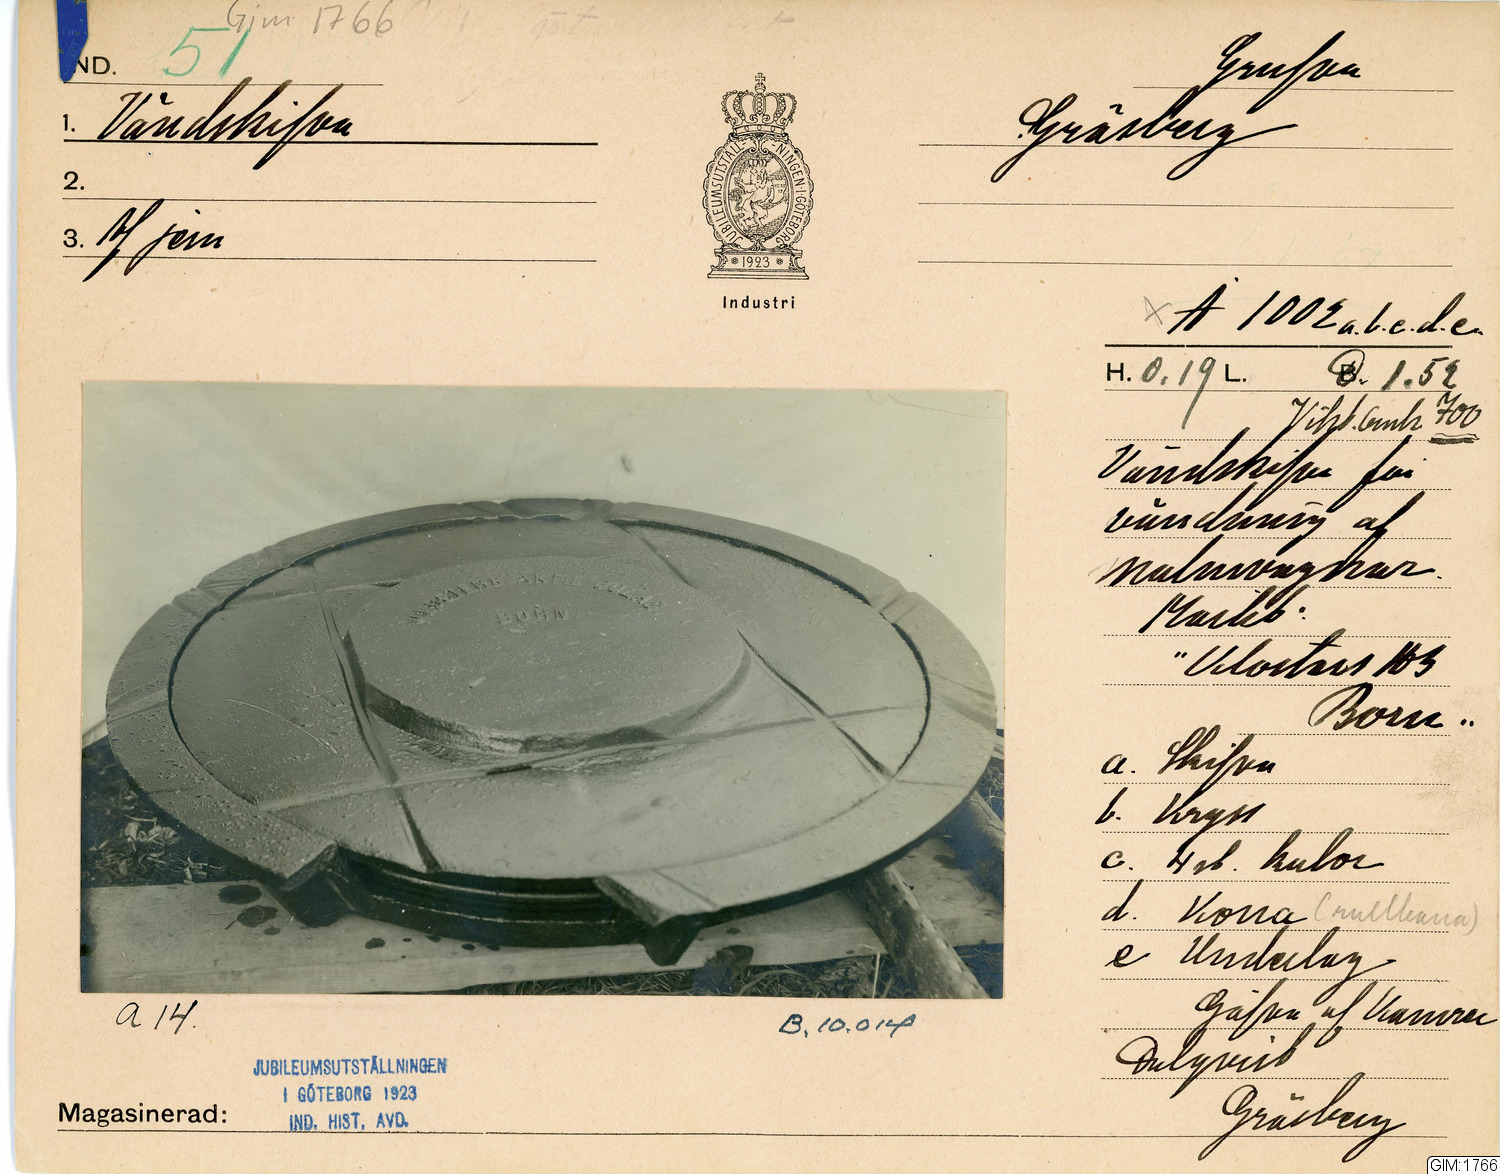 Gim 1766
IND. 51
1. Vändskifva
2.
3. Af jern
JUBILEUMSUTSTÄLLNINGEN I GÖTEBORG
1923
Industri
Grufva
Gräsberg
A 1002 a.b.c.d.e.
H. 0.19 L. D. 1.52
Vikt. omkr 700
Vändskifva för
vändning af
malmvagnar.
Märkt:
"Klosters
Born"
a. Skifva
b. Kryss
c. 4 st. kulor
d. Korra (rullbana)
e Underlag
Gåfva af Kamrer
Dalqvist
Gräsberg
AKTIE BOLAG
BORN
a 14.
B. 10.014
JUBILEUMSUTSTÄLLNINGEN
I GÖTEBORG 1923
IND. HIST. AVD.
Magasinerad:
GIM:1766